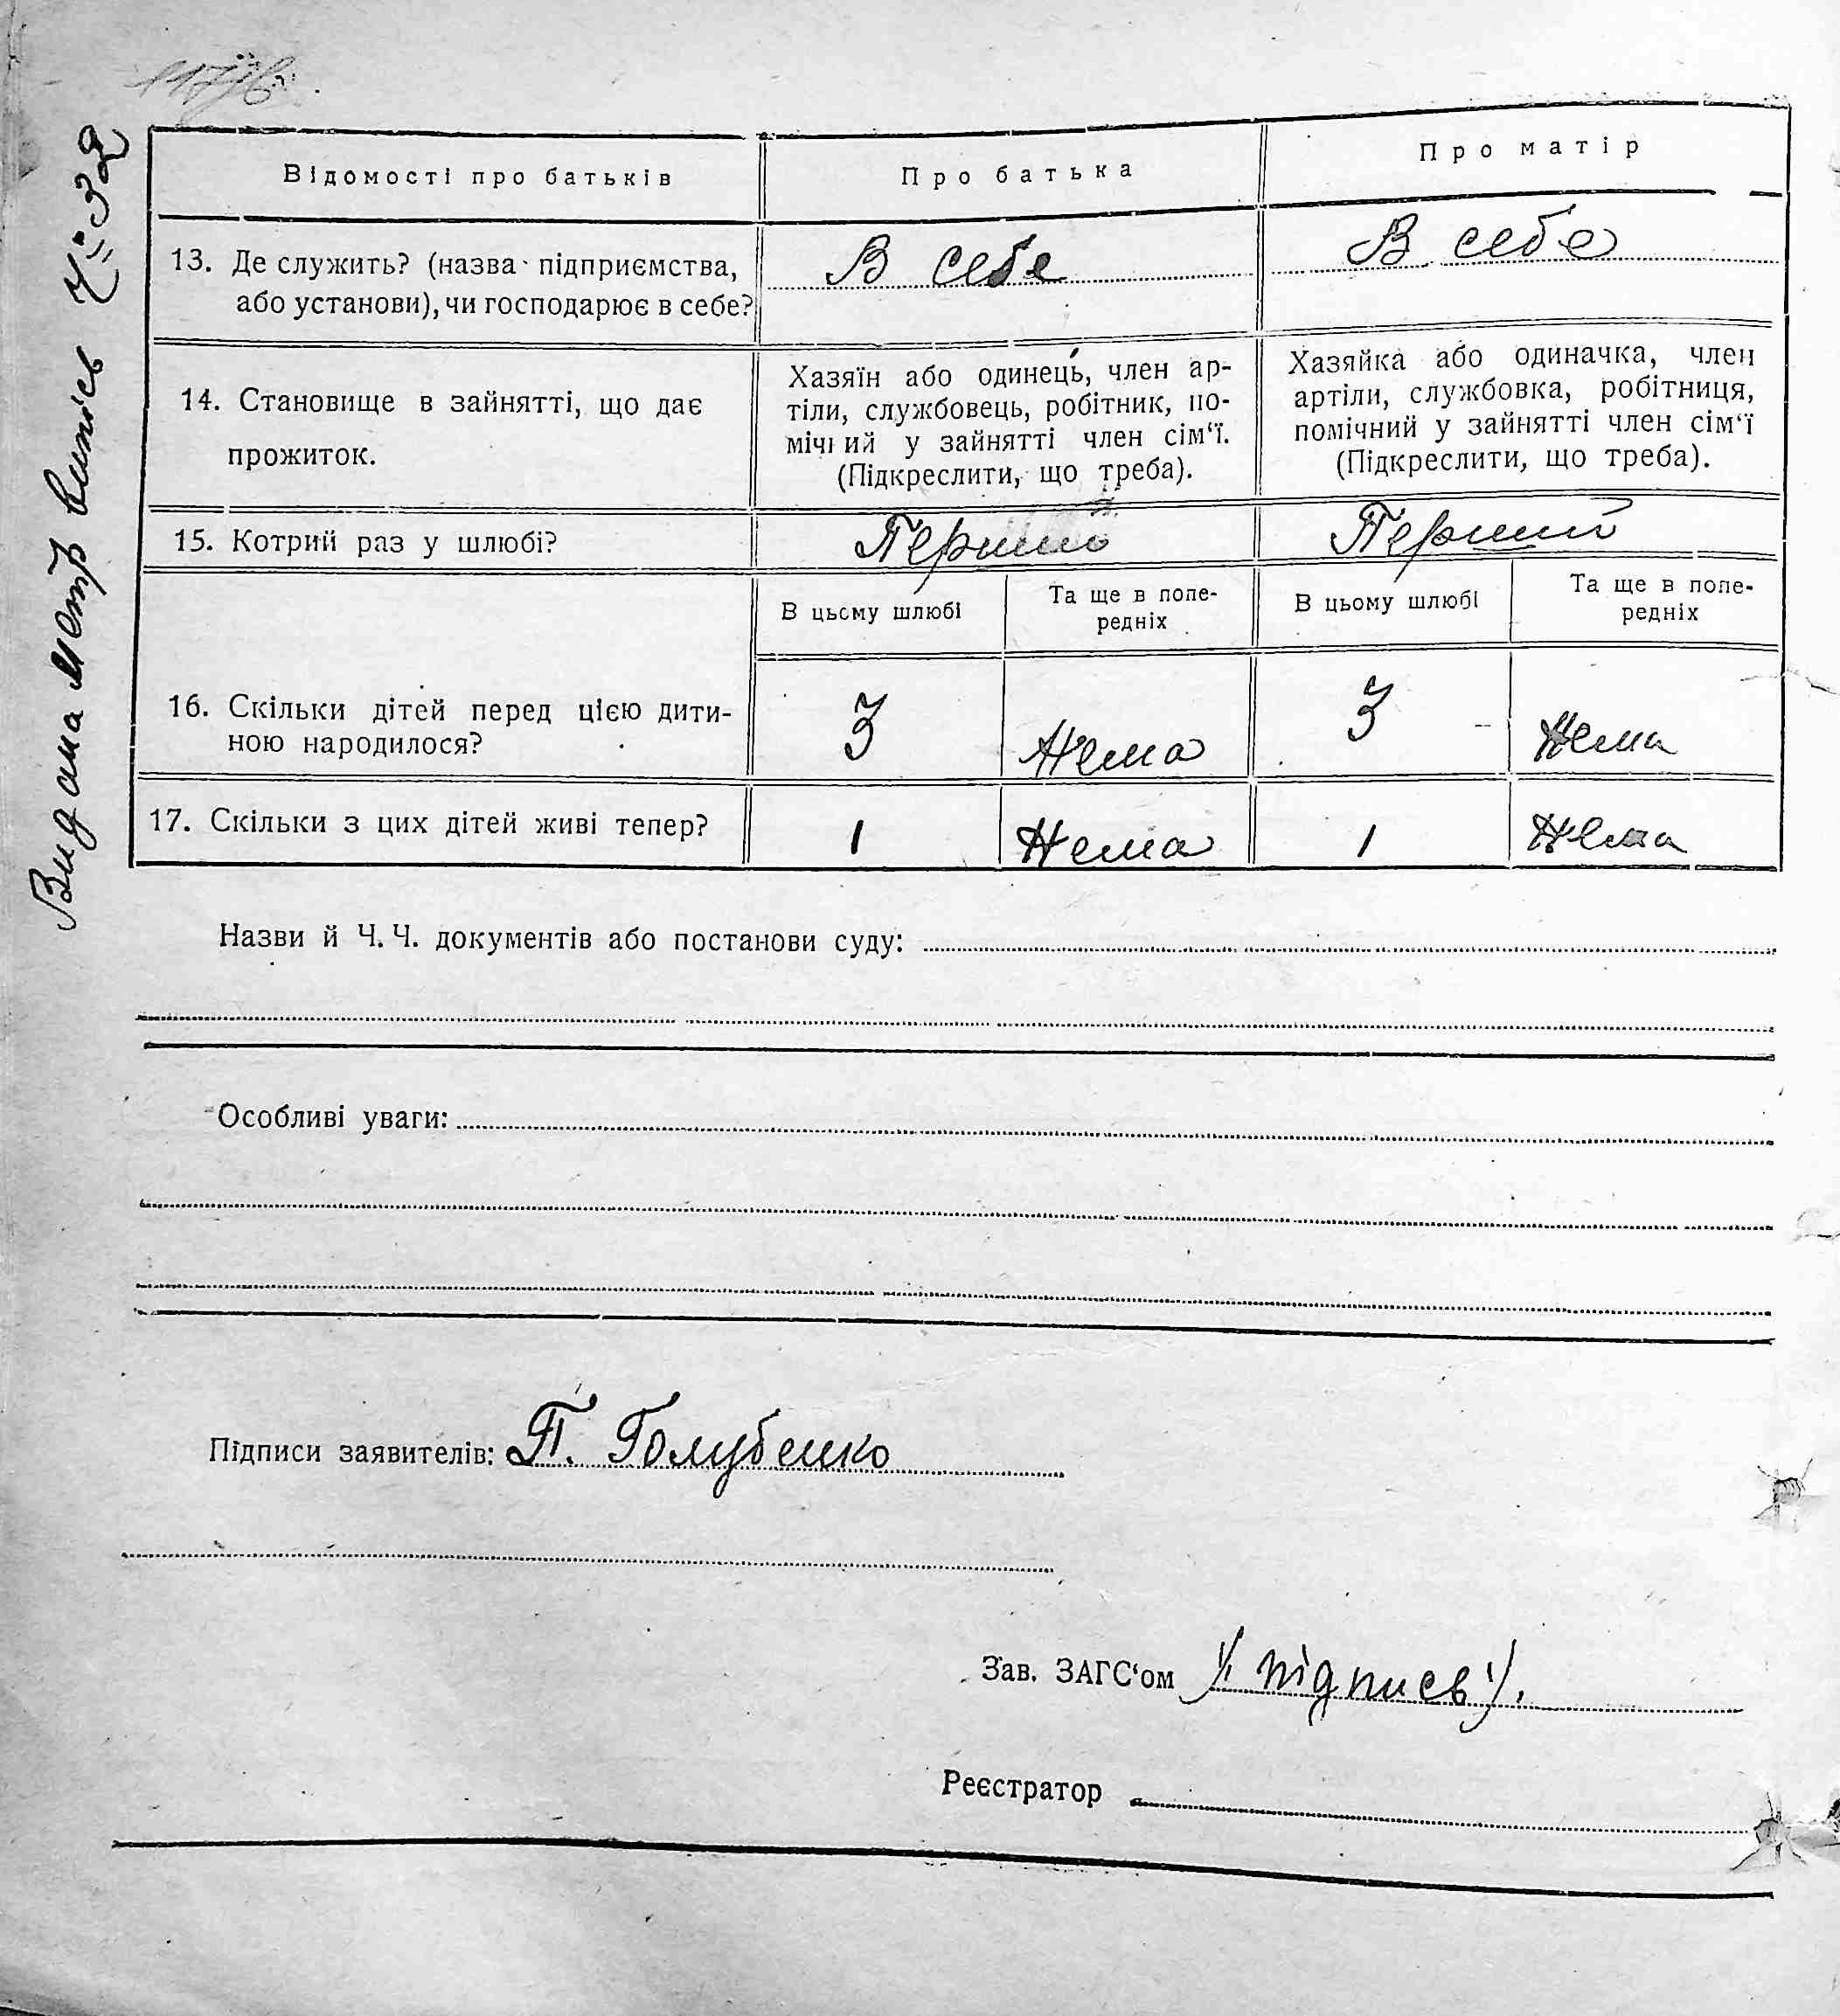 Видана метр випись Ч= 32
Відомості про батьків
Про батька
Про матір
13. Де служить? (назва підприємства,
або установи), чи господарює в себе?
В себе
В себе
14. Становище в зайнятті, що дає
прожиток.
Хазяїн або одинець, член ар-
тіли, службовець, робітник, по-
мічний у зайнятті член сім‘ї.
(Підкреслити, що треба).
Хазяйка або одиначка, член
артіли, службовка, робітниця,
помічний у зайнятті член сім‘ї
(Підкреслити, що треба).
15. Котрий раз у шлюбі?
Перший
Перший
В цьому шлюбі
Та ще в попе-
редніх
В цьому шлюбі
Та ще в попе-
редніх
16. Скільки дітей перед цією дити-
ною народилося?
3
Нема
3
Нема
17. Скільки з цих дітей живі тепер?
1
Нема
1
Нема
Назви й Ч. Ч. документів або постанови суду:
Особливі уваги:
Підписи заявителів: П. Голубенко
Зав. ЗАГС‘ом /підпись/.
Реєстратор